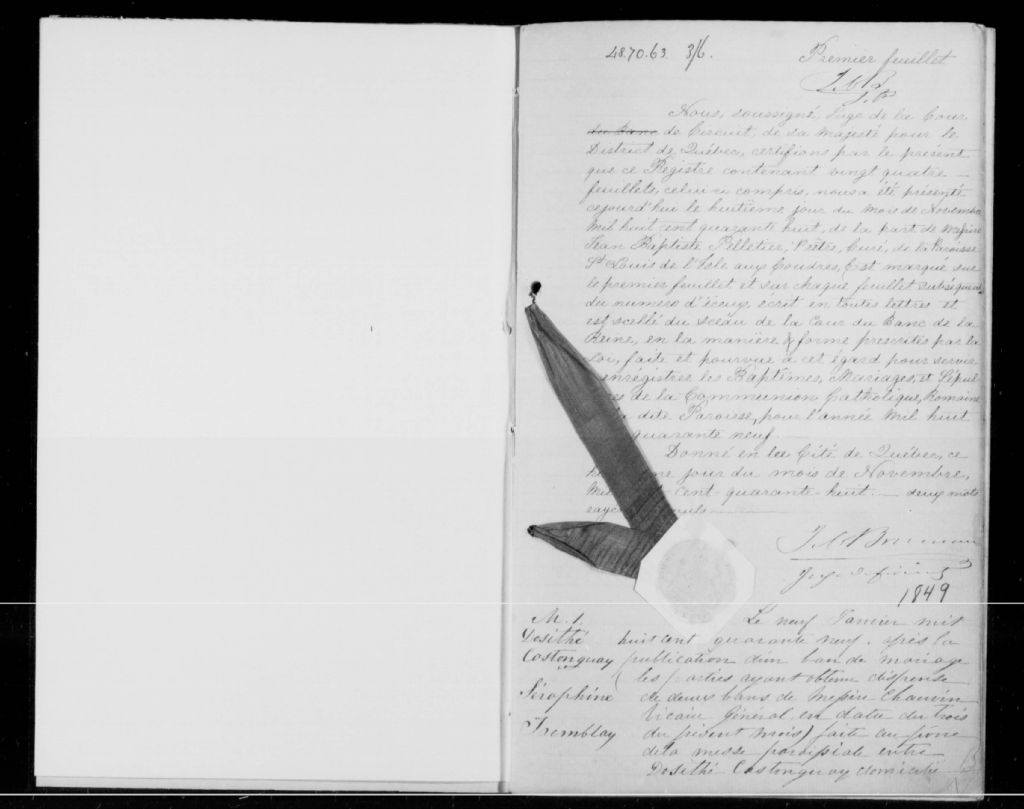 48.70.63. 3/6.
Premier feuillet
Nous, soussigné, Juge de la Cour
du Banc de Circuit, de sa Majesté pour le
District de Québec, certifions par le présent
que ce Régistre contenant vingt quatre
feuillets, celui-ci compris, nous a été présenté
cejourd'hui le huitième jour du mois de Novembre
Mil huit cent quarante huit, de la part de Messire
Jean Baptiste Pelletier, Prêtre, Curé, de la Paroisse
St Louis de l'Isle aux Coudres, Est marqué sur
le premier feuillet et sur chaque feuillet subséquent
du numéro d'iceux, écrit en toutes lettres et
est scellé du sceau de la Cour du Banc de la
Reine, en la manière & forme prescrites par la
Loi, faite et pourvue à cet égard pour servir
enrégistrer les Baptêmes, Mariages, et Sépul-
de la Communion Catholique, Romaine
dite Paroisse, pour l'année Mil huit
quarante neuf.
Donné en la Cité de Québec, ce
jour du mois de Novembre,
Mil cent quarante-huit. — deux mots
rayés nuls
1849
M. 1. Le neuf Janvier mil
Dosithé huit cent quarante neuf, après la
Castonguay publication d'un ban de mariage
(les parties ayant obtenu dispense
Séraphine de deux bans de Messire Chauvin
Vicaire Général en date du trois
Tremblay du présent mois) faite au prone
de la messe paroissiale entre
Dosithé Castonguay domicilié